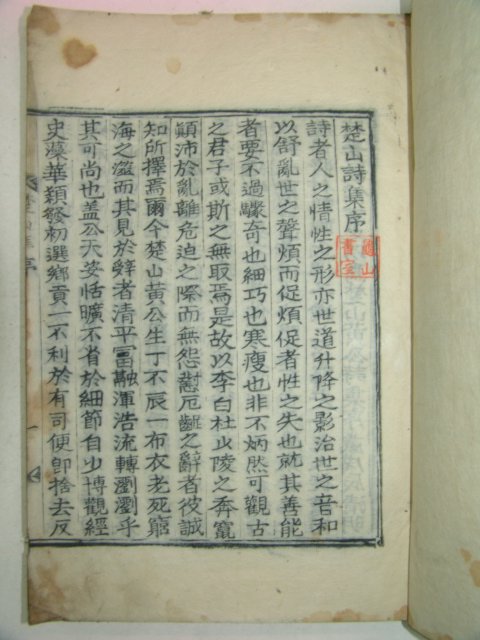 楚山詩集序
龜山書室
詩者人之情性之形亦世道升降之影治世之音和
以舒亂世之聲煩而促煩促者性之失也就其善能
者要不過驟奇也細巧也寒瘦也非不炳然可觀古
之君子或斯之無取焉是故以李白杜山陵之奔竄
顚沛於亂離危迫之際而無怨懟厄齪之辭者彼誠
知所擇焉爾今楚山黃公生丁不辰一布衣老死窮
海之澨而其見於辭者清平富融渾浩流轉瀏瀏乎
其可尚也盖公天姿恬曠不省於細節自少博觀經
史藻華穎發初選鄕貢一不利於有司便卽捨去反